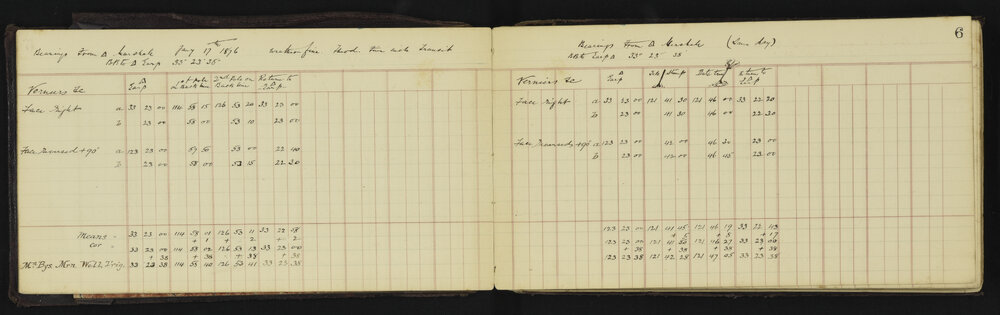 Bearings From △ Marshall Jany 17th 1896 weather fine Theod. Three inch transit
BB to △ Europ 33 23 38
Verniers &c △ Europ 1st pole on Back line 2nd Pole on Back line Return to Europ
Face Right a 33 23 00 114 58 15 126 53 20 33 23 00
b 23 00 58 00 53 10 23 00
Face Reversed +90 a 123 23 00 57 50 53 00 22 40
b 23 00 58 00 53 15 22 30
Means - 33 23 00 114 58 01 126 53 11 33 22 08
Cor " + 1 + 2 + 2
33 23 00 114 58 02 126 53 13 33 23 00
+ 38 + 38 + 38 + 38
Mn Bgs. Mon. Well. Trig. 33 23 38 114 58 40 126 53 41 33 23 38
6
Bearings From △ Marshall (Same day)
BB to Europ △ 33 23 38
Verniers &c △ Europ Return to Europ
Face Right a 33 23 00 121 41 30 121 46 00 33 22 20
b 23 00 41 30 46 00 22 30
Face Reversed +90 a 123 23 00 42 00 46 30 23 00
b 23 00 42 00 46 45 23 00
123 23 00 121 41 45 121 46 19 33 22 43
+ 5 + 8 + 17
123 23 00 121 41 50 121 46 27 33 23 00
+ 38 + 38 + 38
123 23 38 121 42 28 121 47 05 33 23 38